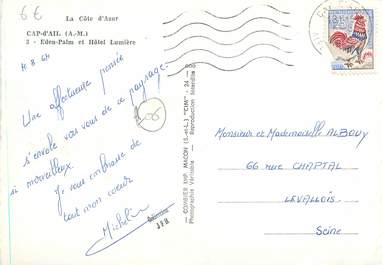 6€
La Côte d'Azur
CAP-d'AIL (A.-M.)
2 - Eden-Palm et Hôtel Lumière
Une affectueuse pensée
s'envole vers vous de ce paysage
si merveilleux.
Je vous embrasse de
tout mon coeur
Micheline
06
COMBIER IMP. MACON (S.-et-L.) "CIM"
Photographie Véritable - Reproduction Interdite
Monsieur et Mademoiselle ALBOUY
66 rue CHAPTAL
LEVALLOIS
Seine